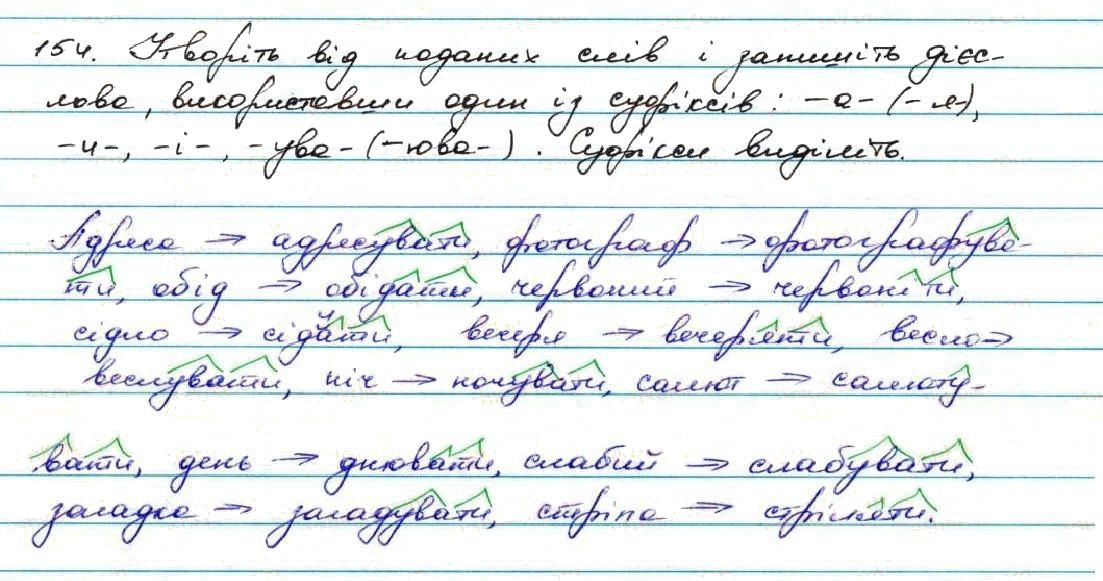 154. Утворіть від поданих слів і запишіть дієс-
лова, використавши один із суфіксів: -а- (-я-),
-и-, -і-, -ува- (-юва-). Суфікси виділіть.
Адреса → адресувати, фотограф → фотографува-
ти, обід → обідати, червоний → червоніти,
сідло → сідати, вечеря → вечеряти, весло →
веслувати, ніч → ночувати, салют → салюту-
вати, день → днювати, слабий → слабувати,
загадка → загадувати, стріла → стріляти.